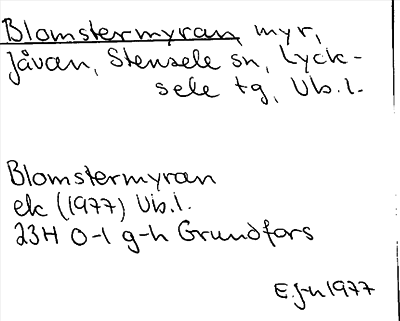 Blomstermyran, myr,
Jåvan, Stensele sn, Lyck-
sele tg, Vb.l.
Blomstermyran
ek (1977) Vb.l.
23H 0-1 g-h Grundfors
E.J-n 1977